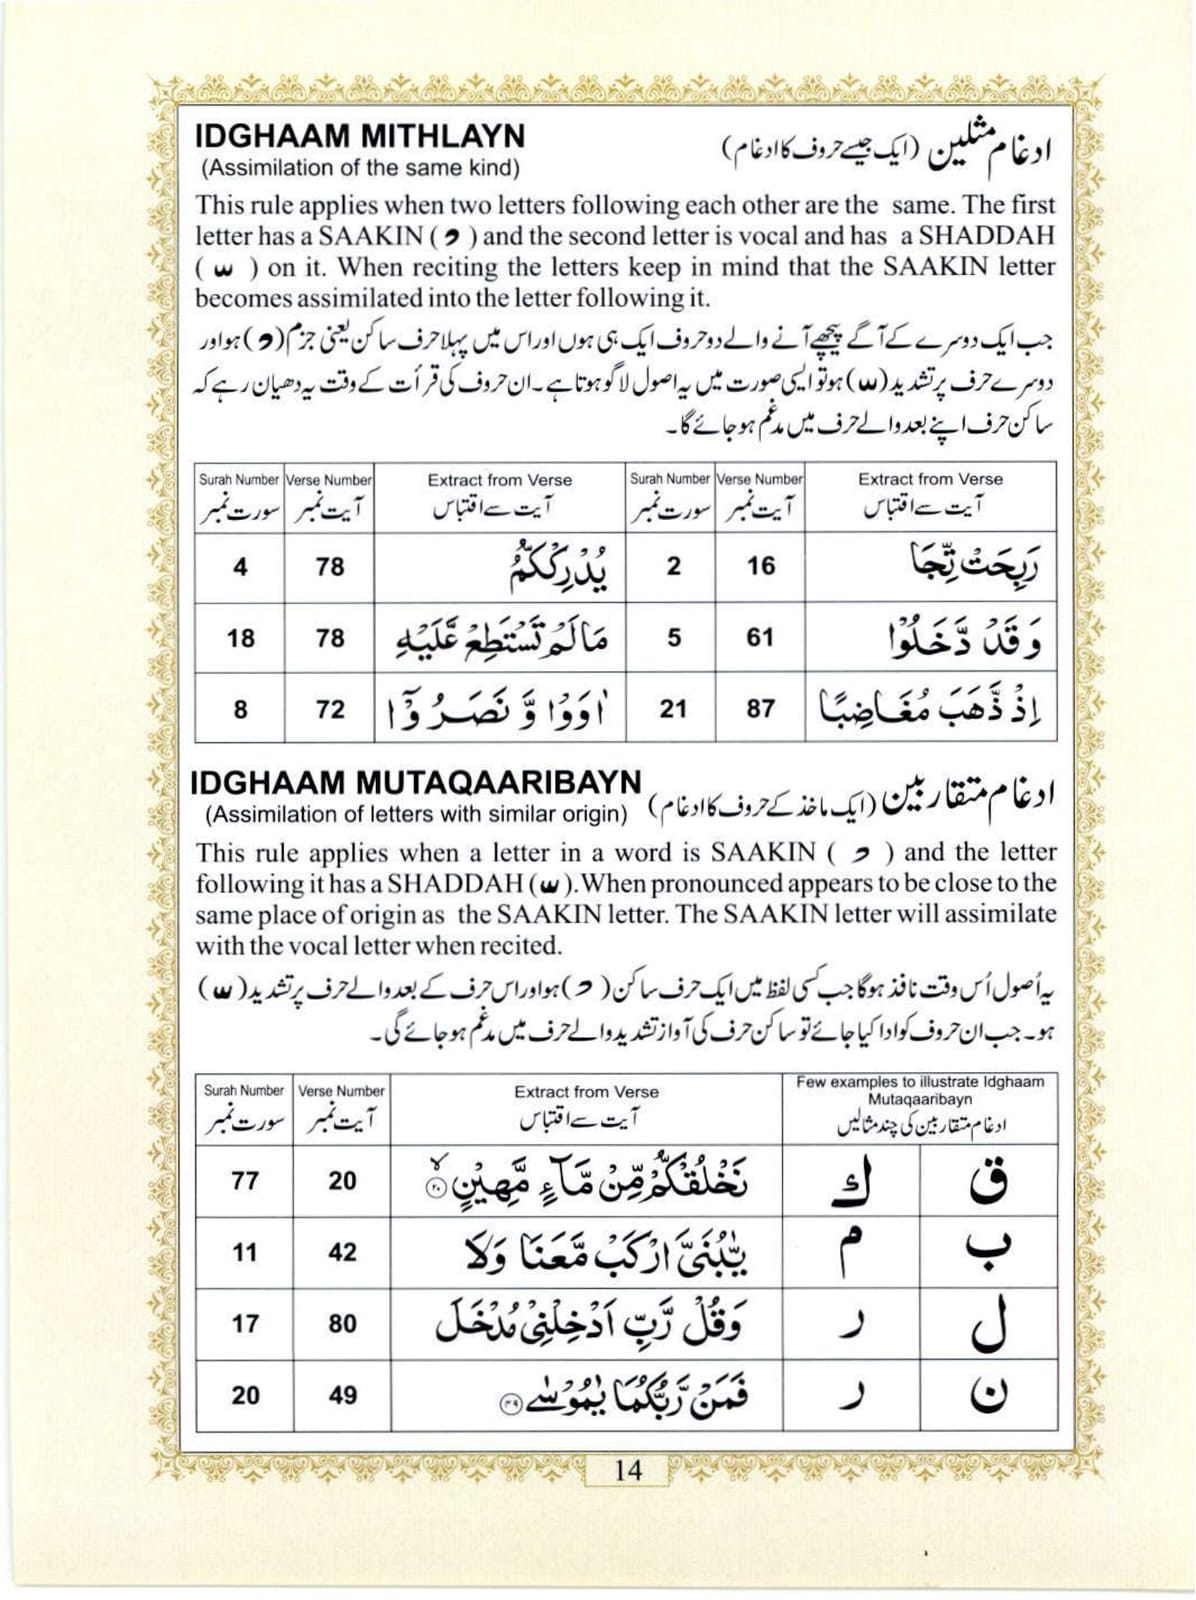 IDGHAAM MITHLAYN
(Assimilation of the same kind)
ادغام مثلین (ایک جیسے حروف کا ادغام)
This rule applies when two letters following each other are the same. The first
letter has a SAAKIN ( ) and the second letter is vocal and has a SHADDAH
( ) on it. When reciting the letters keep in mind that the SAAKIN letter
becomes assimilated into the letter following it.
جب ایک دوسرے کے آگے پیچھے آنے والے دو حروف ایک ہی ہوں اور اس میں پہلا حرف ساکن یعنی جزم ( ) ہو اور
دوسرے حرف پر تشدید ( ) ہو تو ایسی صورت میں یہ اصول لاگو ہوتا ہے۔ ان حروف کی قرأت کے وقت یہ دھیان رہے کہ
ساکن حرف اپنے بعد والے حرف میں مدغم ہو جائے گا۔
Surah Number Verse Number Extract from Verse Surah Number Verse Number Extract from Verse
سورت نمبر آیت نمبر آیت سے اقتباس سورت نمبر آیت نمبر آیت سے اقتباس
4 78 يُدْرِكْكُّمُ 2 16 رَبِحَتْ تِّجَا
18 78 مَالَمْ تَسْتَطِعْ عَّلَيْهِ 5 61 وَقَدْ دَّخَلُوْا
8 72 اٰوَوْا وَّنَصَرُوْٓا 21 87 اِذْ ذَّهَبَ مُغَاضِبًا
IDGHAAM MUTAQAARIBAYN
(Assimilation of letters with similar origin)
ادغام متقاربین (ایک ماخذ کے حروف کا ادغام)
This rule applies when a letter in a word is SAAKIN ( ) and the letter
following it has a SHADDAH ( ).When pronounced appears to be close to the
same place of origin as the SAAKIN letter. The SAAKIN letter will assimilate
with the vocal letter when recited.
یہ اُصول اُس وقت نافذ ہوگا جب کسی لفظ میں ایک حرف ساکن ( ) ہو اور اس حرف کے بعد والے حرف پر تشدید ( )
ہو۔ جب ان حروف کو ادا کیا جائے تو ساکن حرف کی آواز تشدید والے حرف میں مدغم ہو جائے گی۔
Surah Number Verse Number Extract from Verse Few examples to illustrate Idghaam
Mutaqaaribayn
سورت نمبر آیت نمبر آیت سے اقتباس ادغام متقاربین کی چند مثالیں
77 20 نَخْلُقْكُّمْ مِّنْ مَّآءٍ مَّهِيْنٍ ۙ۝۲۰ ك ق
11 42 يّٰبُنَيَّ ارْكَبْ مَّعَنَا وَلَا م ب
17 80 وَقُلْ رَّبِّ اَدْخِلْنِيْ مُدْخَلَ ر ل
20 49 فَمَنْ رَّبُّكُمَا يٰمُوْسٰى ۝۴۹ ر ن
14